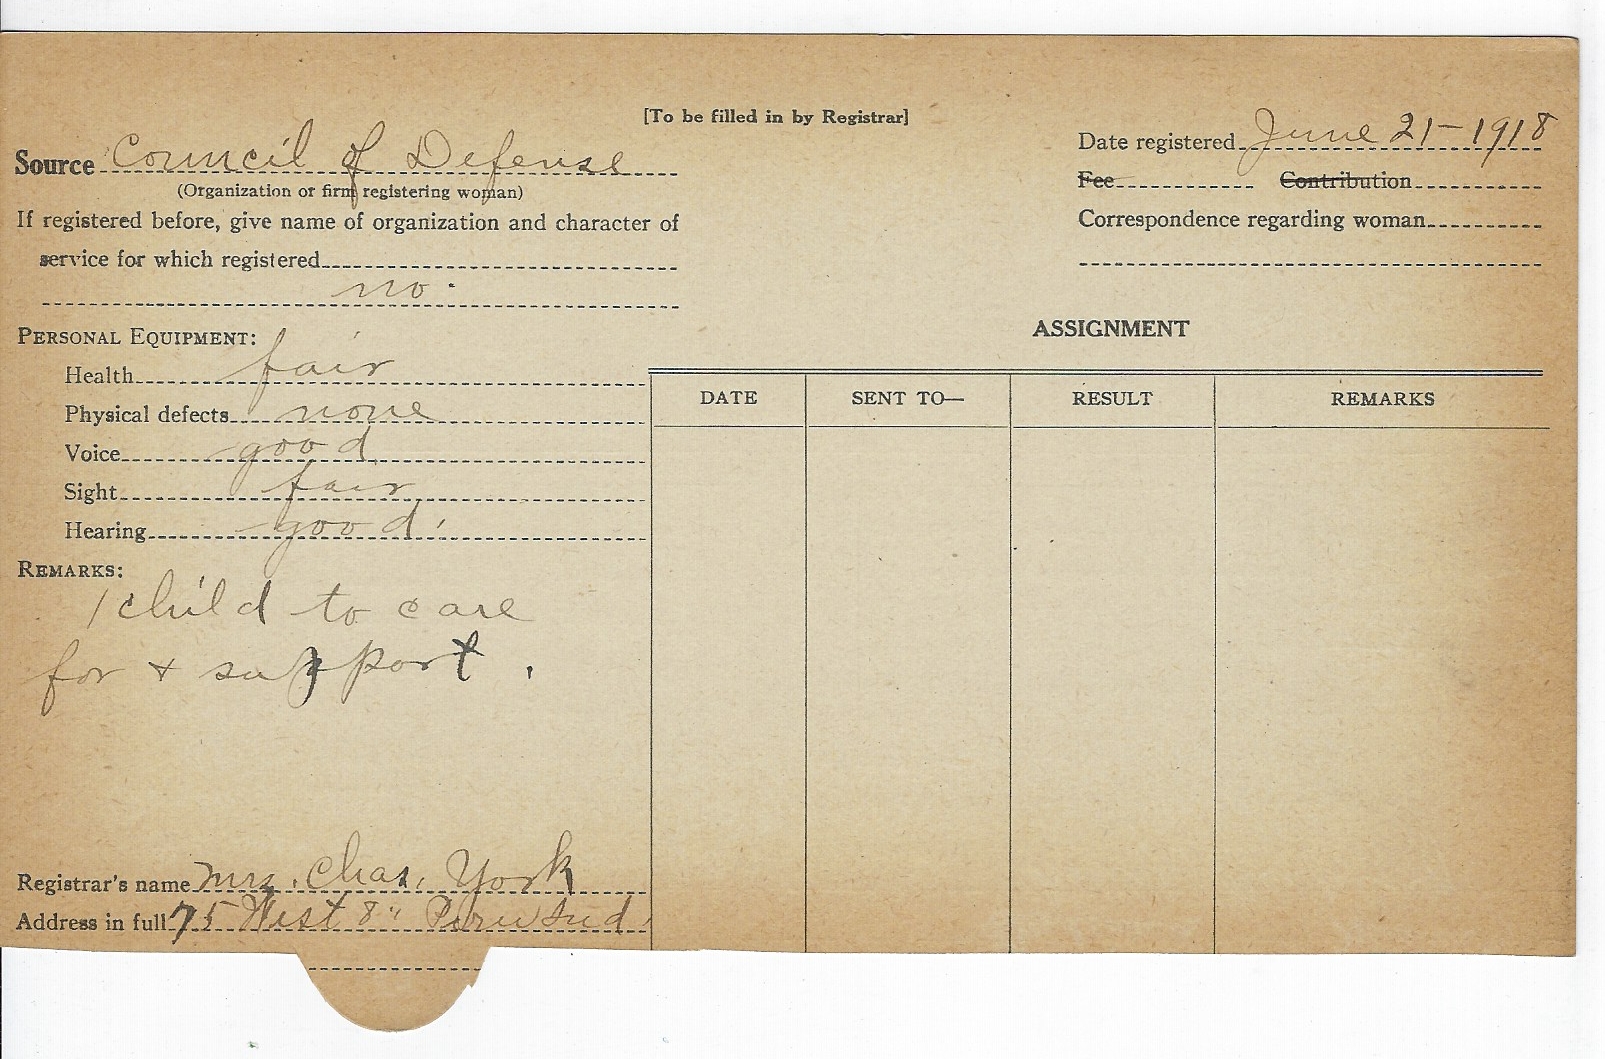 [To be filled in by Registrar]
Source Council of Defense
(Organization or firm registering woman)
If registered before, give name of organization and character of
service for which registered
no.
PERSONAL EQUIPMENT:
Health fair
Physical defects none
Voice good
Sight fair
Hearing good.
REMARKS:
1 child to care
for + support.
Registrar's name Mrs. Chas. York
Address in full 75 West 8" Peru Ind.
Date registered June 21-1918
Fee Contribution
Correspondence regarding woman
ASSIGNMENT
DATE SENT TO— RESULT REMARKS